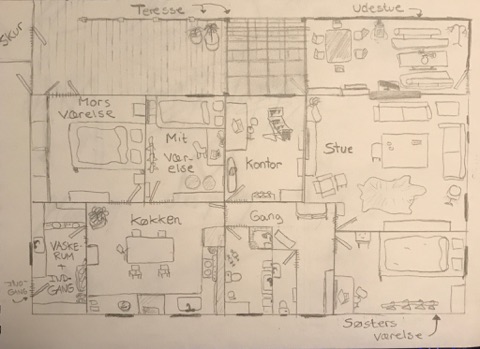 Teresse
Udestue
Skur
Mors
Værelse
Mit
Vær-
else
Kontor
Stue
Køkken
Gang
VASKE-
RUM
+
IND-
GANG
IND-
GANG
Søsters
værelse